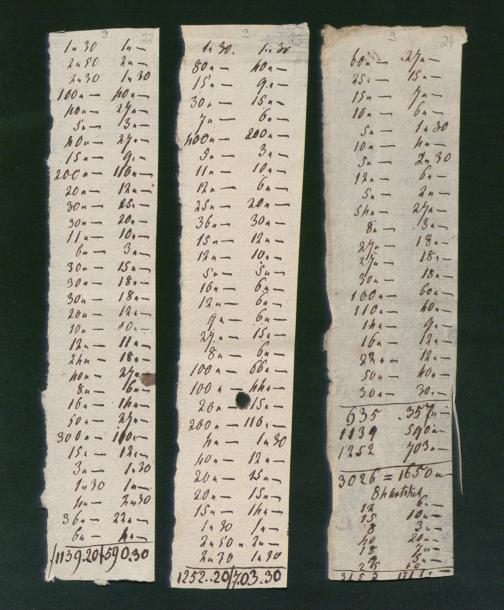 9 23
1 " 30 1 " —
2 " 50 2 " —
2 " 30 1 " 30
100 " — 40 " —
40 " — 27 " —
5 " — 3 " —
40 " — 27 " —
15 " — 9 " —
200 " — 116 " —
20 " — 12 " —
30 " — 25 " —
30 " — 20 " —
11 " — 10 " —
6 " — 3 " —
30 " — 15 " —
30 " — 18 " —
30 " — 18 " —
20 " — 12 " —
10 " —
12 " — 11 " —
24 " — 18 " —
40 " — 27 " —
8 " — 6 " —
16 " — 14 " —
50 " — 27 " —
300 " —
15 " — 12 " —
3 " — 1 " 30
1 " 30 1 " —
4 " — 2 " 30
36 " — 22 " —
6 " — 4 " —
1139.20 590.30
9 23
1 " 30 1 " 30
80 " — 40 " —
15 " — 9 " —
30 " — 15 " —
7 " — 6 " —
400 " — 200 " —
3 " — 3 " —
11 " — 10 " —
12 " — 6 " —
25 " — 20 " —
36 " — 30 " —
15 " — 12 " —
12 " — 10 " —
5 " — 5 " —
16 " — 6 " —
12 " — 6 " —
9 " — 6 " —
27 " — 15 " —
8 " — 6 " —
100 " — 66 " —
100 " — 44 " —
20 " — 15 " —
200 " — 116 " —
4 " — 1 " 30
40 " — 12 " —
20 " — 15 " —
20 " — 15 " —
15 " — 14 " —
1 " 30 1 " —
2 " 50 2 " —
2 " 30 1 " 30
1252.20 703.30
9 24
60 " — 27 " —
25 " — 15 " —
15 " — 7 " —
10 " — 6 " —
5 " — 1 " 30
10 " — 4 " —
5 " — 2 " 30
12 " — 6 " —
5 " — 2 " —
54 " — 27 " —
8 " — 3 " —
27 " — 18 " —
27 " — 18 " —
30 " — 18 " —
100 " — 60 " —
110 " — 40 " —
14 " — 9 " —
16 " — 12 " —
22 " — 12 " —
50 " — 40 " —
30 " — 30 " —
635 357 " —
1139 590 " —
1252 703 " —
3026 = 1650 "
12 6 " —
15 10 " —
8 3 " —
40 20 " —
18 7 " —